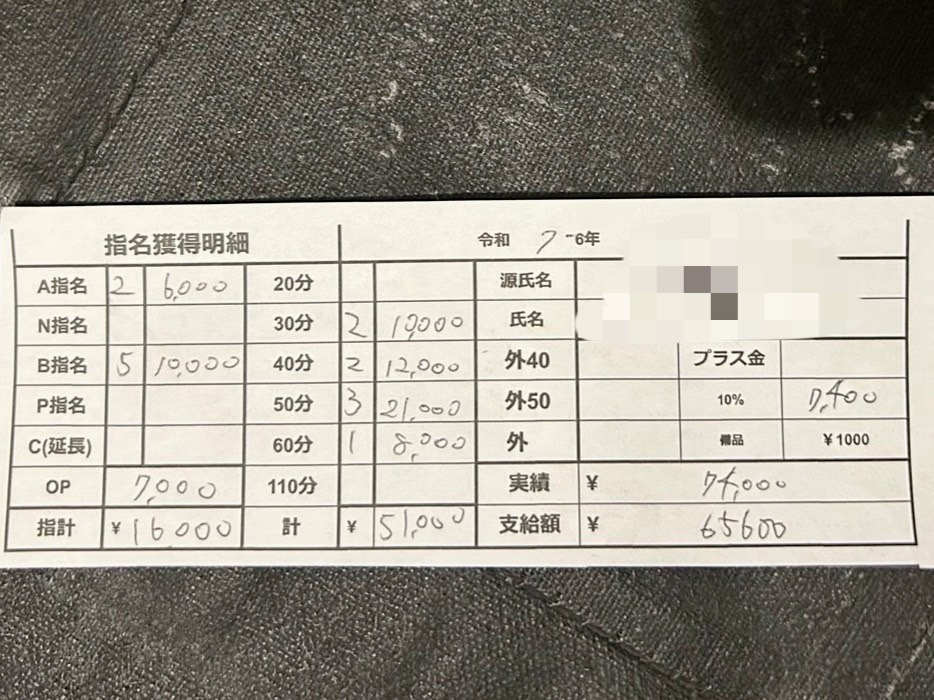 指名獲得明細 令和 7-6年
A指名 2 6,000 20分 源氏名
N指名 30分 2 10,000 氏名
B指名 5 10,000 40分 2 12,000 外40 プラス金
P指名 50分 3 21,000 外50 10% 7,400
C(延長) 60分 1 8,000 外 備品 ¥1000
OP 7,000 110分 実績 ¥ 74,000
指計 ¥ 16000 計 ¥ 51,000 支給額 ¥ 65600